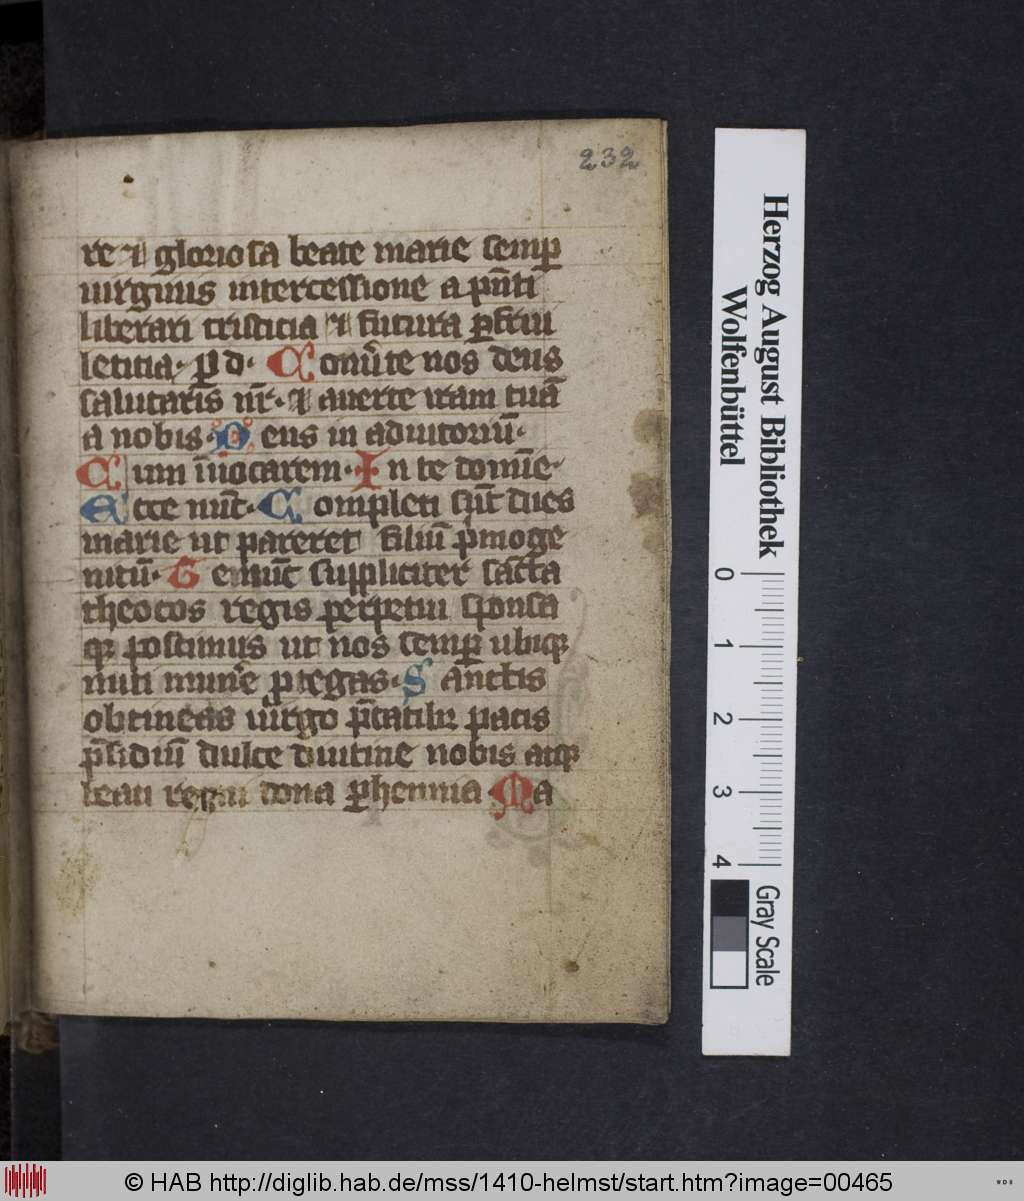 232
re ⁊ gloriosa beate marie semꝑ
uirginis intercessione a pn̄ti
liberari tristicia ⁊ futura ꝑfrui
leticia · ꝑ d · Conu̾te nos deus
salutaris nr̄ · ⁊ auerte iram tuā
a nobis · Deus in adiutoriū ·
Cum īuocarem · In te domīe ·
Ecce nūc · Completi sūt dies
marie ut pareret filiū pͥmoge
nitū · Genniūt suppliciter sācta
theotos regis perpetui sponsa
qꝫ poscimus ut nos semꝑ ubiqꝫ
miti mune̾ ꝓtegas · Sanctis
obtineas uirgo p̄catibꝫ pacis
p̄sidiū dulce diuitine nobis atqꝫ
beati regni dona ꝑhennia Ma
Herzog August Bibliothek
Wolfenbüttel
0 1 2 3 4
Gray Scale
© HAB http://diglib.hab.de/mss/1410-helmst/start.htm?image=00465